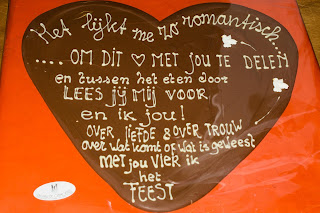 Het lijkt me zo romantisch...
.....OM DIT ♡ MET JOU TE DELEN
en tussen het eten door
LEES JIJ MIJ VOOR
en ik jou!
OVER LIEFDE & OVER TROUW
over wat komt of wat is geweest
MET jou VIER ik
het
FEEST